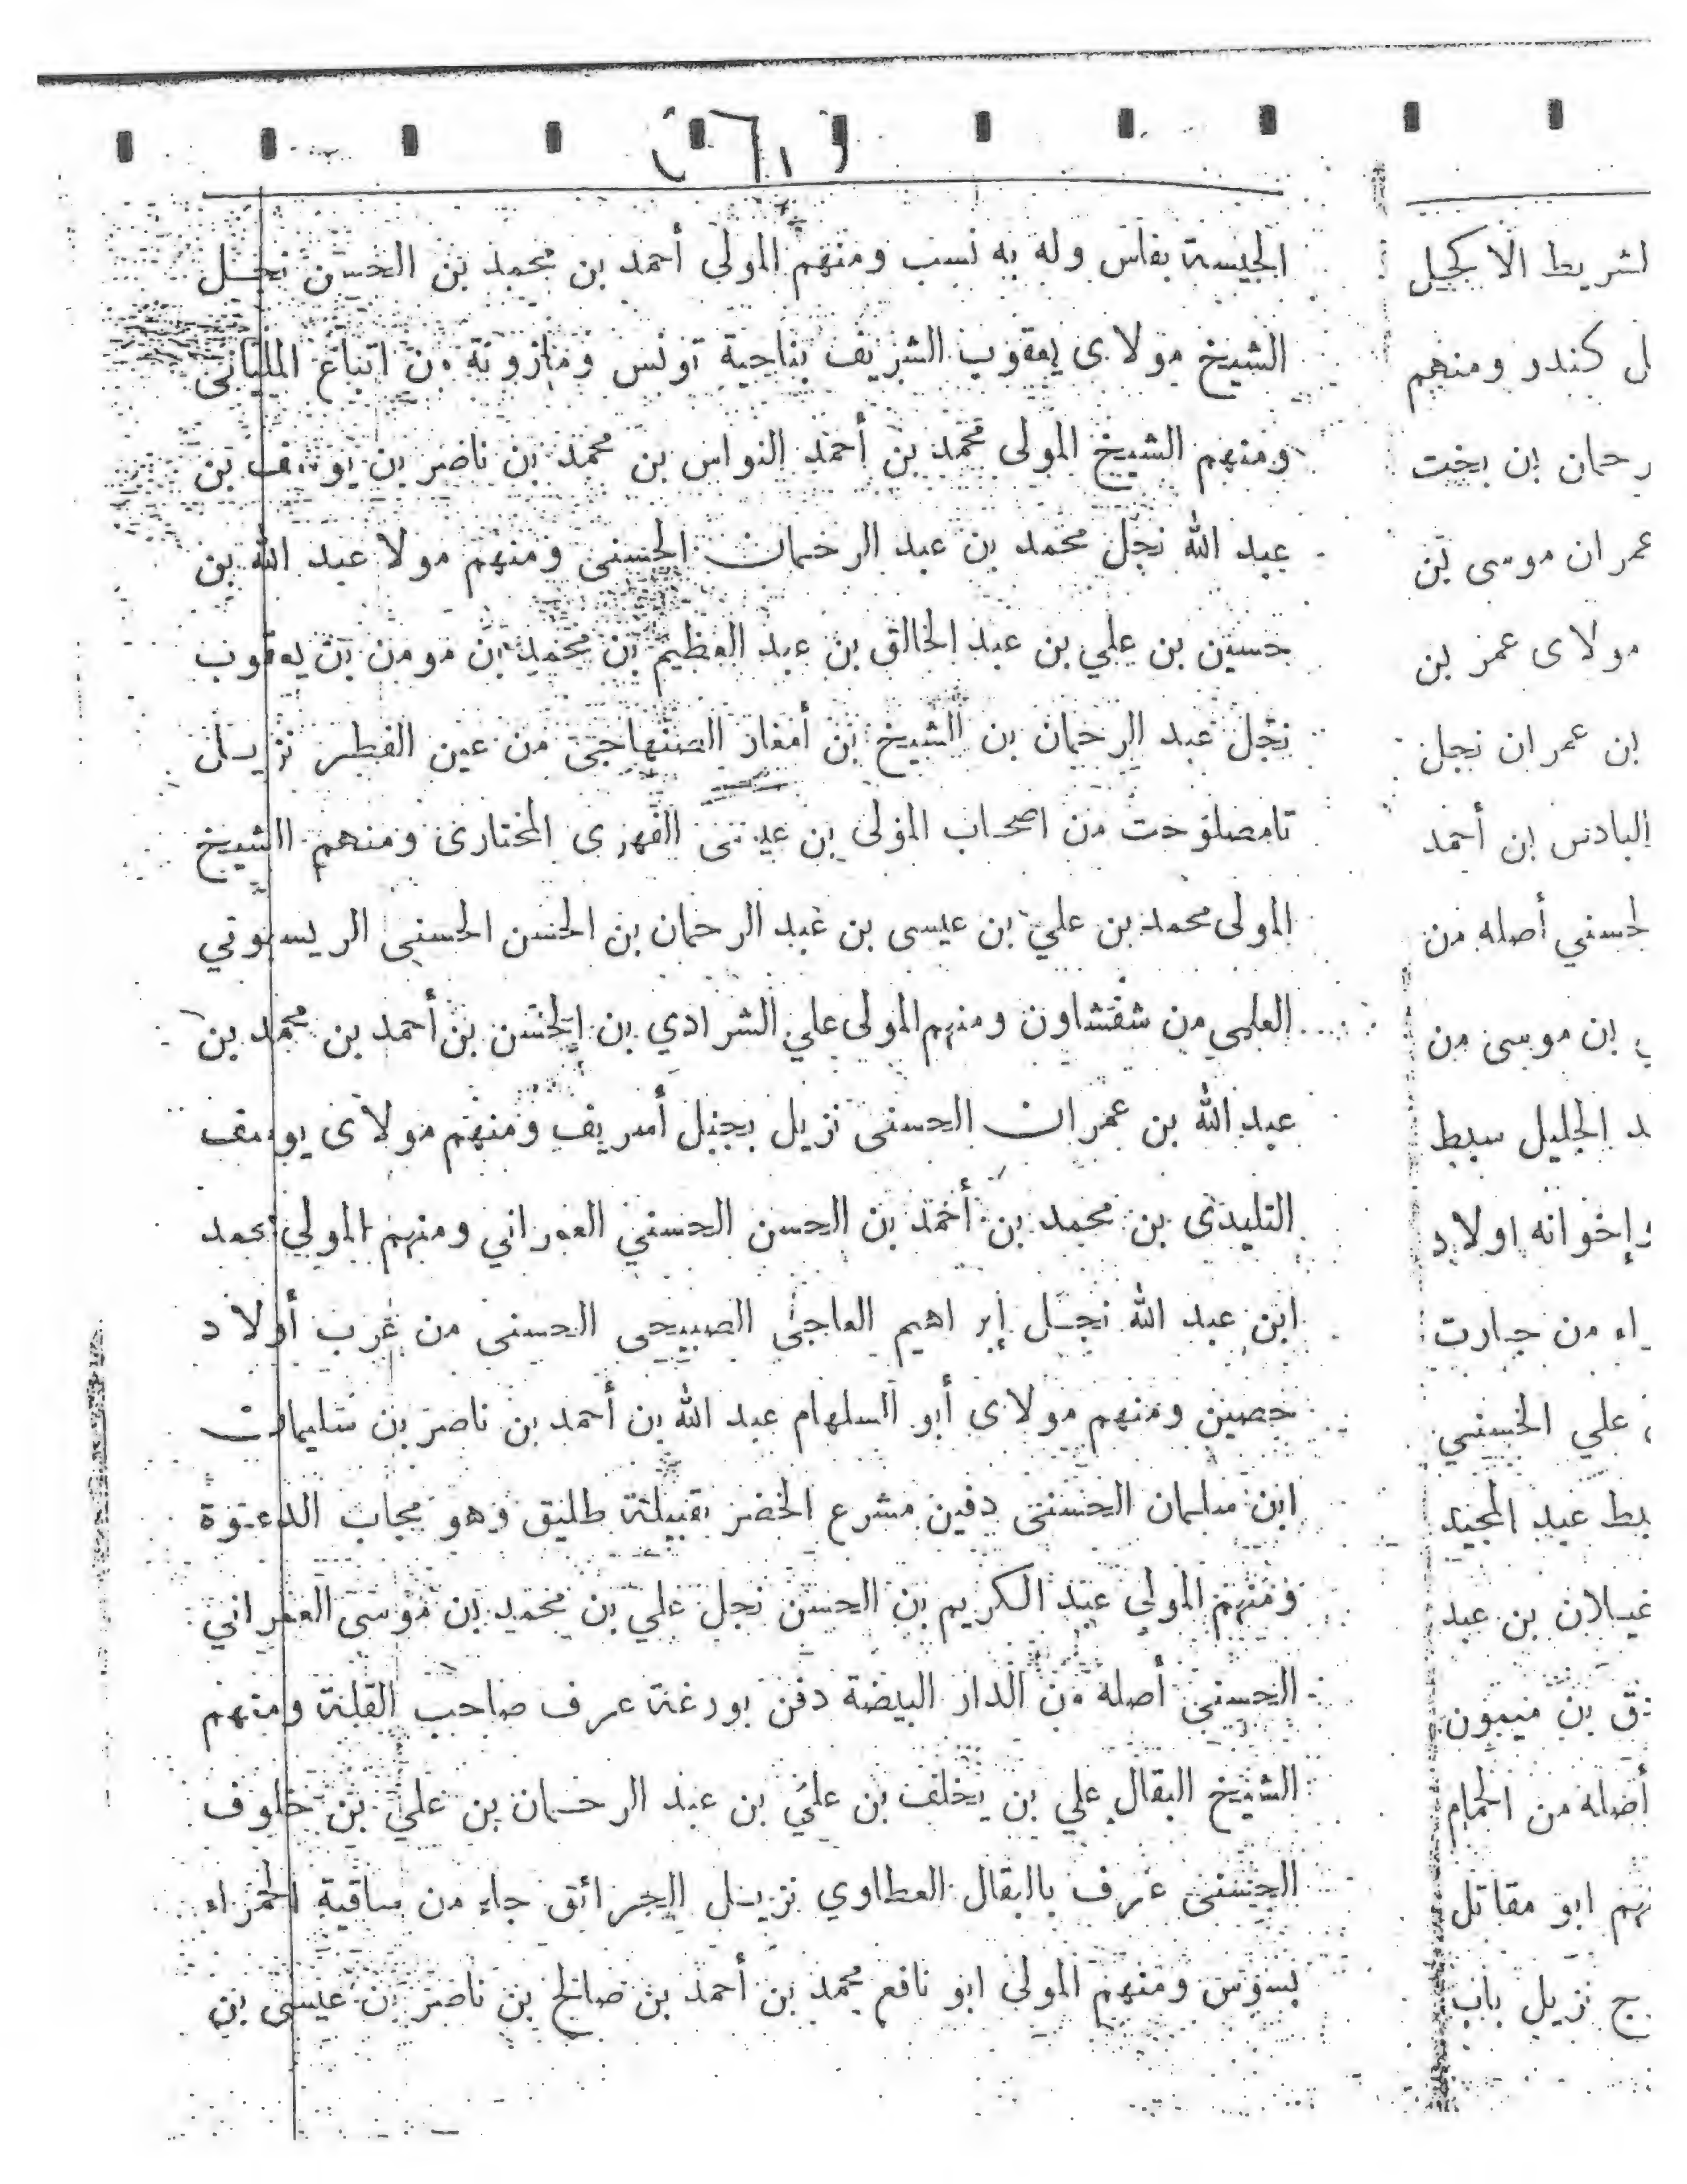 الجيسة بفاس وله به نسب ومنهم المولى أحمد بن محمد بن الحسن نجل
الشيخ مولاى يعقوب الشريف بناحية تونس ومازونة من اتباع الملياني
ومنهم الشيخ المولى محمد بن أحمد النواس بن محمد بن ناصر بن يوسف بن
عبد الله نجل محمد بن عبد الرحمان الحسنى ومنهم مولا عبد الله بن
حسين بن علي بن عبد الخالق بن عبد العظيم بن محمد بن مومن بن يعقوب
نجل عبد الرحمان بن الشيخ بن أمغار الصنهاجى من عين الفطر نزيل
تامصلوحت من اصحاب المولى بن عيسى الفهرى المختارى ومنهم الشيخ
المولى محمد بن علي بن عيسى بن عبد الرحمان بن الحسن الحسنى الريسوني
العلمي من شفشاون ومنهم المولى علي الشرادي بن الحسن بن أحمد بن محمد بن
عبد الله بن عمران الحسنى نزيل بجبل أسريف ومنهم مولاى يوسف
التليدى بن محمد بن أحمد بن الحسن الحسني العمراني ومنهم المولي محمد
ابن عبد الله نجل إبراهيم العاجى الصبيحى الحسنى من غرب أولاد
حصين ومنهم مولاى أبو السلهام عبد الله بن أحمد بن ناصر بن سليمان
ابن سلمان الحسنى دفين مشرع الخضر بقبيلة طليق وهو مجاب الدعوة
ومنهم المولى عبد الكريم بن الحسن نجل علي بن محمد بن موسى العمراني
الحسني أصله من الدار البيضة دفن بورغة عرف صاحب القلة ومنهم
الشيخ البقال علي بن يخلف بن علي بن عبد الرحمان بن علي بن خلوف
الحسنى عرف بالبقال العطاوي نزيل الجرائق جاء من ساقية الحمراء
بسوس ومنهم المولى ابو نافع محمد بن أحمد بن صالح بن ناصر بن عيسى بن
لشريط الاكحيل
ل كندر ومنهم
رحمان بن بخت
عمران موسى بن
مولاى عمر بن
بن عمران نجل
البادسى بن أحمد
لحسني أصله من
بن موسى من
د الجليل سبط
وإخوانه اولاد
راء من جبارت
علي الحسني
بط عبد المجيد
غيلان بن عبد
ق بن ميمون
أصله من الحمام
نهم ابو مقاتل
ج نزيل باب